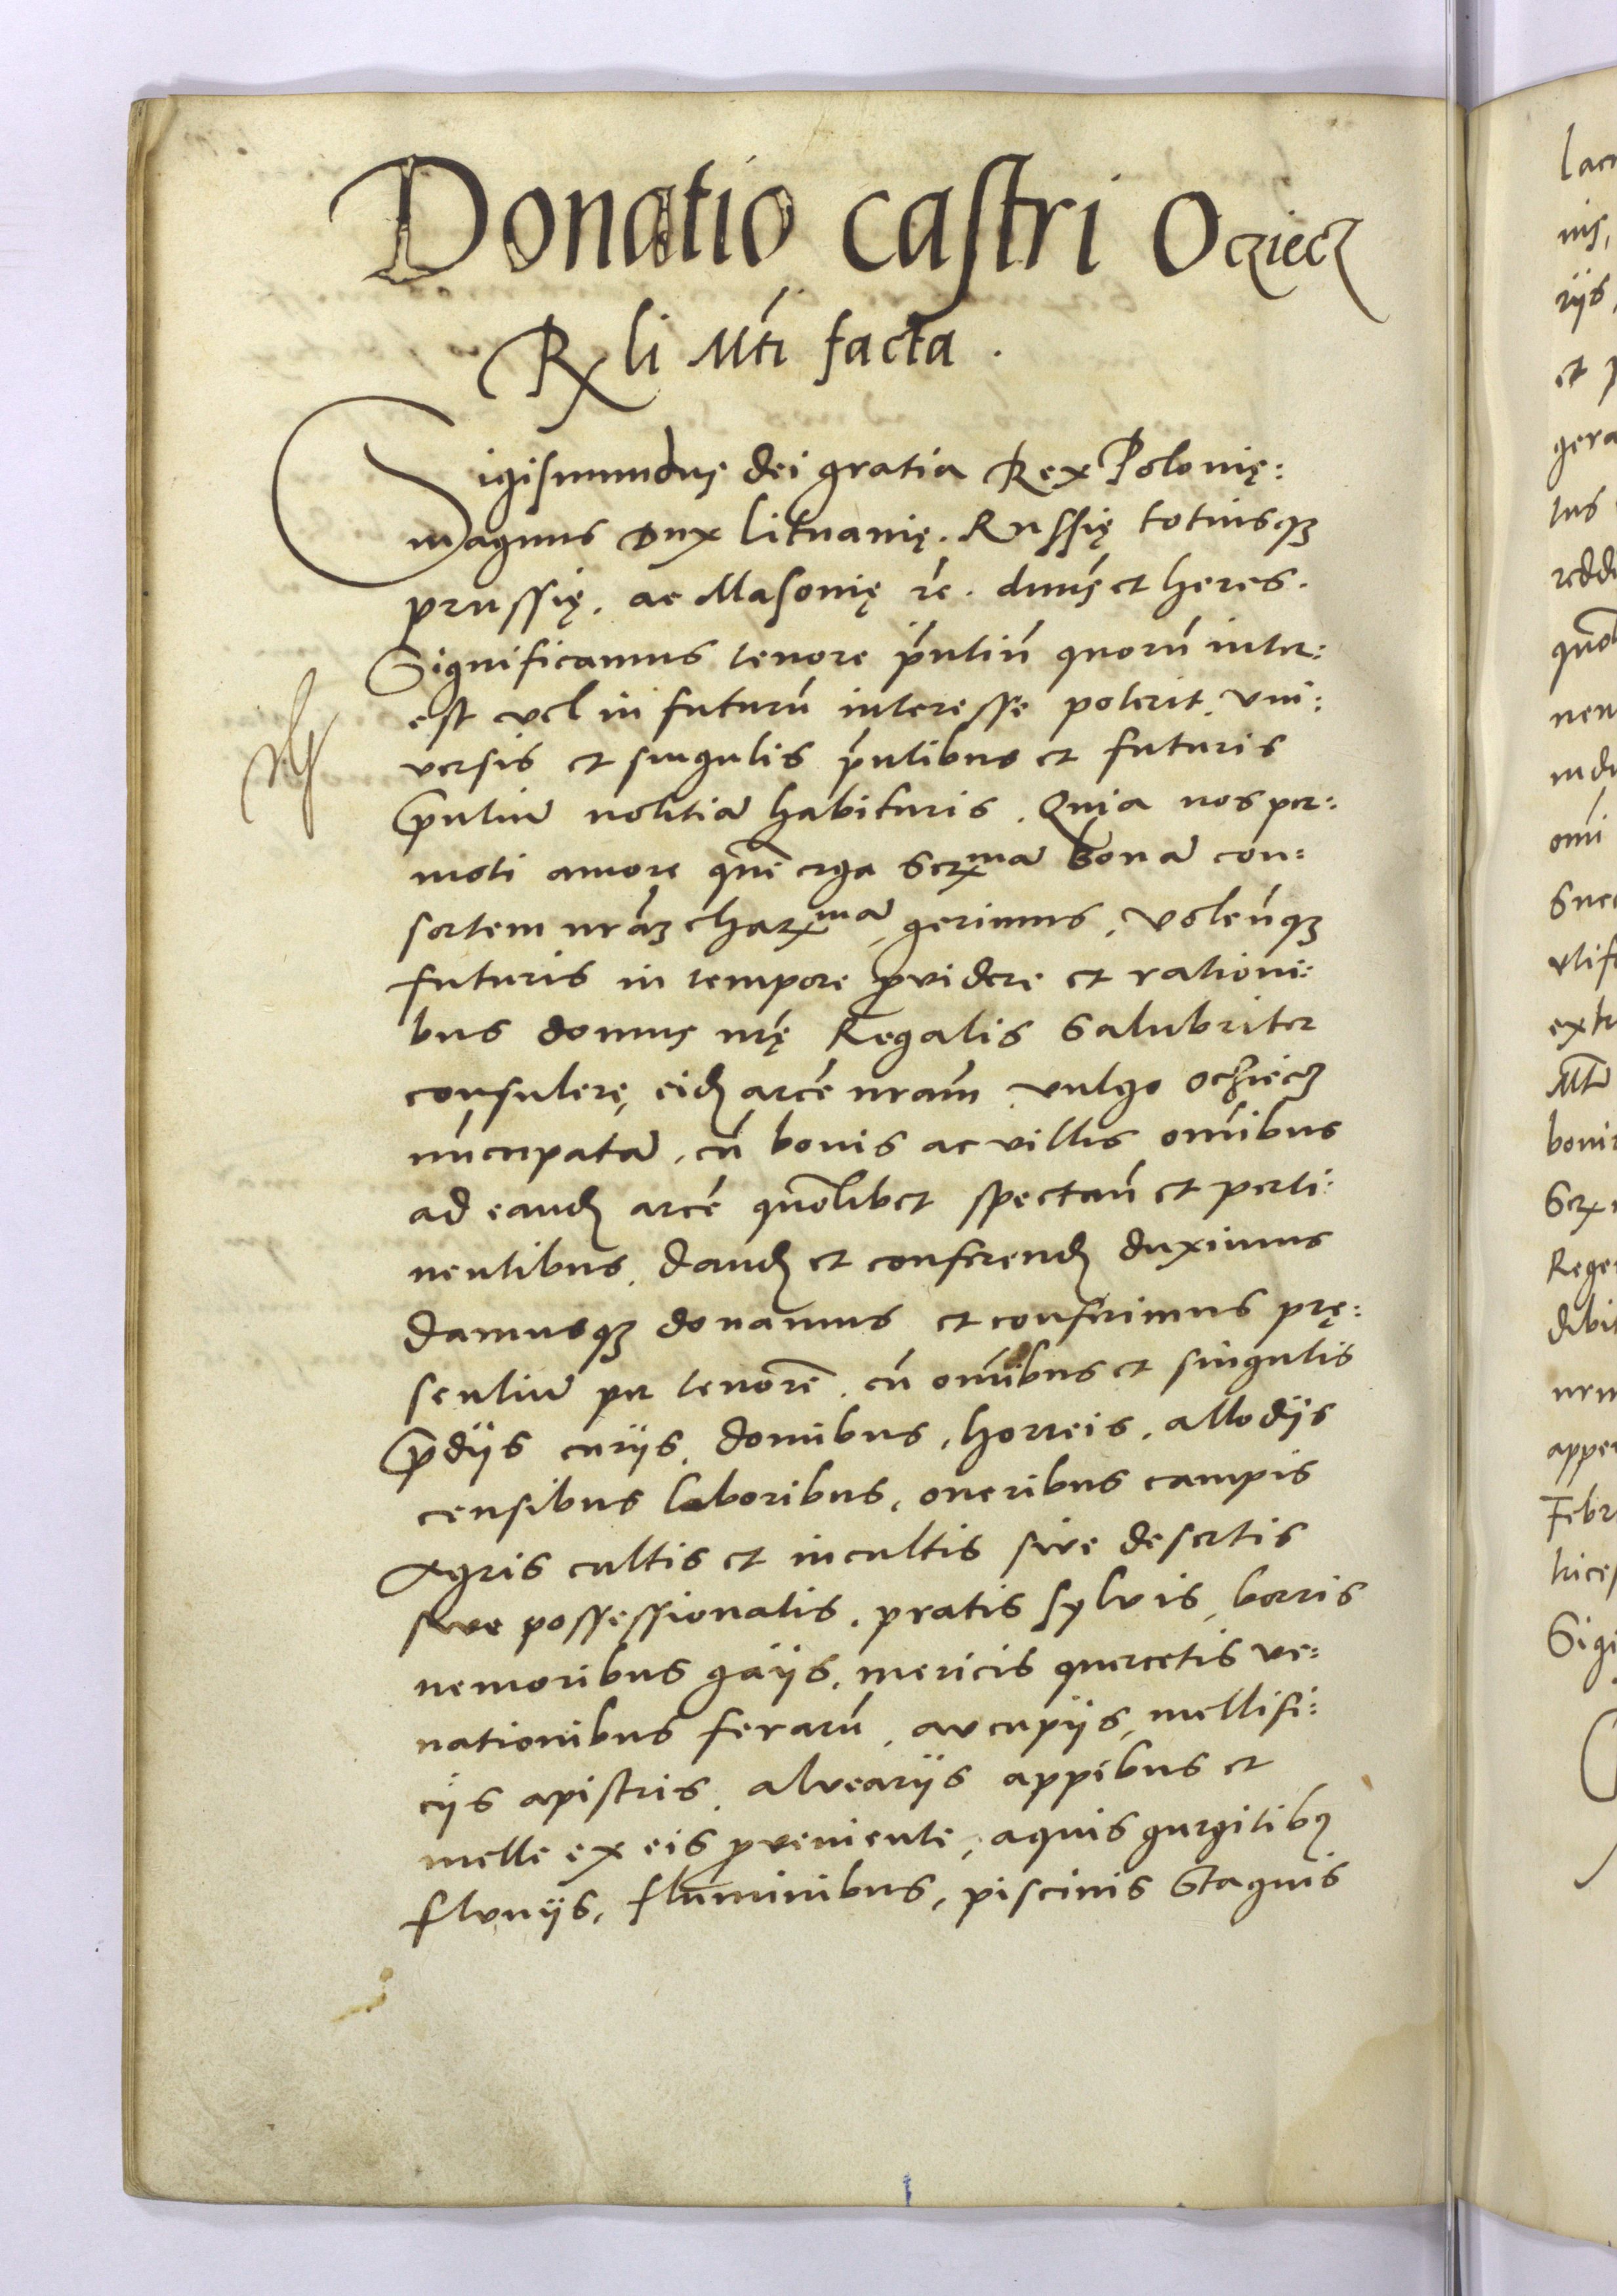 Donatio castri Ocziecz
Rx li Mti facta .
Sigismundus dei gratia Rex Polonię:
magnus Dux lituanię. Russię totiusqz
prussię. ac Masonię rc̄. dnus et heres.
Significamus tenore p̄ntiū quorū inter:
est vel in futurū interesse poterit. vni:
versis et singulis p̄ntibus et futuris
p̄ntium notitiā habituris. Quia nos per:
moti amore quē erga Serxmā Bonā con:
sortem nrāz charxmā, gerimus. Volen̄qz
futuris in tempore ꝓvidere et rationi:
bus domus nr̄ę Regalis Salubriter
consulere, eidꝫ arcē nram̄ vulgo ochziecz
nūcupatā, cū bonis ac villis omībus
ad eandꝫ arcē quōlibet spectan̄ et perti:
nentibus. dandꝫ et conferendꝫ duximus
damusqz donamus et conferimus prę:
sentium per tenorē. cū omībus et singulis
p̄dijs curijs. domibus, horreis. allodijs
censibus laboribus, oneribus campis
Agris cultis et incultis sive desertis
sive possessionatis. pratis sylvis, borris
nemoribus gaijs. mericis quercetis ve:
nationibus ferarū, avcupijs, mellifi:
cijs apistris. alvearijs appibus et
melle ex eis ꝓveniente, aquis gurgitibꝫ
fluvijs, fluminibus, piscinis Stagnis
lacu
nis,
rijs
et p
gera
tus
redd
quol
nen
ndu
omi
Suc
vtif
extr
Mtē
bonis
Serx
Rege
dibit
nrm
appen
Febr
trices
Sigi